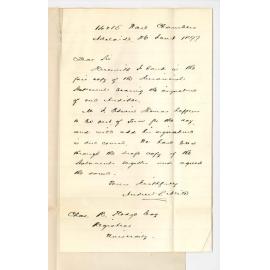 14 & 15 Nat Chambers
Adelaide 26 Jany 1897
Dear Sir
Herewith I hand in the
fair copy of the Financial
Statements bearing the signature
of one Auditor
Mr J. Edwin Thomas happens
to be out of Town for the day
and will add his signature
in due course. We have been
through the draft copy of the
Statements together and signed
the same.
Yours faithfully
Chas. R. Hodge Esq
Registrar
University.